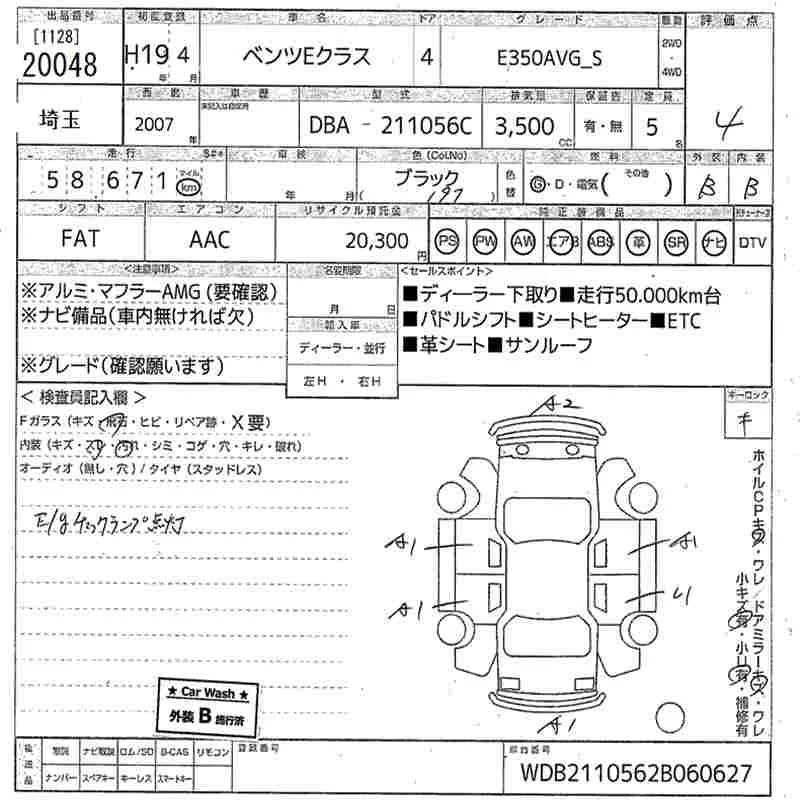 出品番号 初度登録 車名 ドア グレード 駆動 評価点
[1128]
20048 H19 4 ベンツEクラス 4 E350AVG_S 2WD・4WD
年 月
埼玉 西暦 車歴 型式 排気量 保証書 定員
未記入は自家用
2007年 DBA - 211056C 3,500 CC 有・無 5名 4
走行 S#* 車検 色(Col.No) 燃料 外装 内装
58671 マイル km 年 月 ブラック (197) 色替 G・D・電気( その他 ) B B
シフト エアコン リサイクル預託金 純正装備品 TVチューナー
FAT AAC 20,300円 PS PW AW エアB ABS 革 SR ナビ DTV
<注意事項> 名変期限 <セールスポイント>
※アルミ・マフラーAMG(要確認) ■ディーラー下取り■走行50.000km台
※ナビ備品(車内無ければ欠) 月 日 ■パドルシフト■シートヒーター■ETC
輸入車 ■革シート■サンルーフ
※グレード(確認願います) ディーラー・並行
左H・右H
<検査員記入欄> キーロック
キ
Fガラス(キズ・飛石・ヒビ・リペア跡・X要)
内装(キズ・スレ・汚れ・シミ・コゲ・穴・キレ・破れ)
オーディオ(無し・穴)/タイヤ(スタッドレス)
E/gチェックランプ点灯
A2
A1 A1
A1 U1
A1
ホイルCPキズ・ワレ/ドアミラーキズ・ワレ
小キズ有・小U有・補修有
★ Car Wash ★
外装 B 施行済
後送品 取説 ナビ取説 ロム/SD B-CAS リモコン 登録番号 車台番号
ナンバー スペアキー キーレス スマートキー WDB2110562B060627